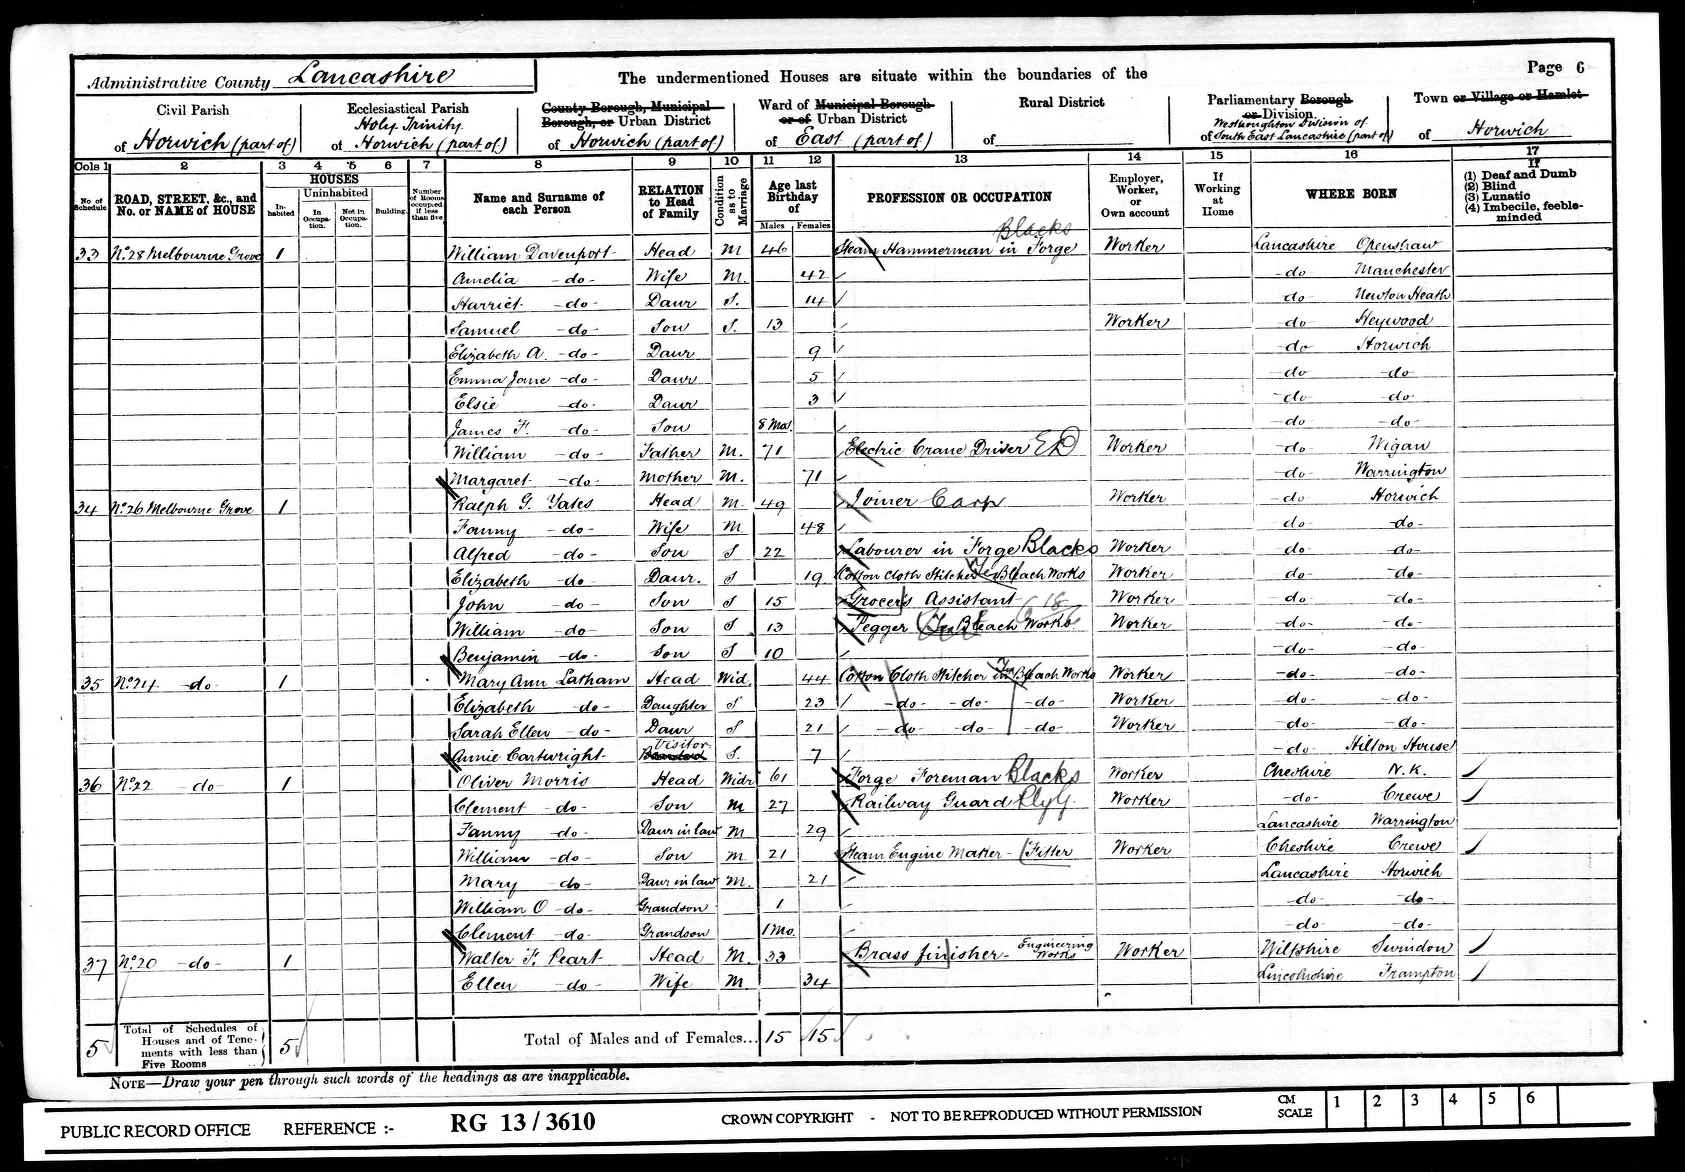 Administrative County Lancashire
The undermentioned Houses are situate within the boundaries of the
Page 6
Civil Parish of Horwich (part of)
Ecclesiastical Parish Holy Trinity of Horwich (part of)
County Borough, Municipal Borough, or Urban District of Horwich (part of)
Ward of Municipal Borough or of Urban District of East (part of)
Rural District of
Parliamentary Borough or Division Westhoughton Division of of South East Lancashire (part of)
Town or Village or Hamlet of Horwich
Cols 1 2 3 4 5 6 7 8 9 10 11 12 13 14 15 16 17
No. of Schedule
ROAD, STREET, &c., and No. or NAME of HOUSE
HOUSES
Inhabited
Uninhabited
In Occupation.
Not in Occupation.
Building.
Number of Rooms occupied if less than five
Name and Surname of each Person
RELATION to Head of Family
Condition as to Marriage
Age last Birthday of
Males Females
PROFESSION OR OCCUPATION
Employer, Worker, or Own account
If Working at Home
WHERE BORN
If
(1) Deaf and Dumb
(2) Blind
(3) Lunatic
(4) Imbecile, feeble-minded
33 No. 28 Melbourne Grove 1 William Davenport Head M 46 Steam Hammerman in Forge Blacks Worker Lancashire Openshaw
Amelia -do- Wife M. 42 -do Manchester
Harriet -do- Daur S. 14 do Newton Heath
Samuel -do- Son S. 13 Worker do Heywood
Elizabeth A. -do- Daur 9 -do Horwich
Emma Jane -do- Daur 5 -do -do-
Elsie -do- Daur 3 -do -do-
James F. -do- Son 8 Mo. do -do-
William -do- Father M. 71 Electric Crane Driver ED Worker -do Wigan
Margaret -do- Mother M. 71 -do Warrington
34 No. 26 Melbourne Grove 1 Ralph G. Yates Head M. 49 Joiner Carp Worker -do Horwich
Fanny -do- Wife M 48 do -do-
Alfred -do- Son S 22 Labourer in Forge Blacks Worker do -do-
Elizabeth -do- Daur. S 19 Cotton Cloth Stitcher Bleach Works Worker do- -do-
John -do- Son S 15 Grocers Assistant 18 Worker -do- -do-
William -do- Son S 13 Pegger In Bleach Works Worker -do- -do-
Benjamin -do- Son S 10 -do- -do-
35 No. 24 -do- 1 Mary Ann Latham Head Wid. 44 Cotton Cloth Stitcher in Bleach Works Worker -do- -do-
Elizabeth -do- Daughter S 23 -do- -do- -do- Worker -do- -do-
Sarah Ellen -do- Daur S 21 -do- -do- -do- Worker -do- -do-
Annie Cartwright Visitor S. 7 -do- Hilton House
36 No. 22 -do- 1 Oliver Morris Head Widr 61 Forge Foreman Blacks Worker Cheshire N.K.
Clement -do- Son M 27 Railway Guard Rly G. Worker -do- Crewe
Fanny -do- Daur in law M 29 Lancashire Warrington
William -do- Son M 21 Steam Engine Maker - Fitter Worker Cheshire Crewe
Mary do- Daur in law M. 21 Lancashire Horwich
William O -do- Grandson 1 -do- -do-
Clement -do- Grandson 1 Mo. -do- -do-
37 No. 20 -do- 1 Walter F. Peart Head M. 33 Brass finisher - Engineering Works Worker Wiltshire Swindon
Ellen -do- Wife M 34 Lincolnshire Frampton
5 Total of Schedules of Houses and of Tenements with less than Five Rooms 5 Total of Males and of Females... 15 15
NOTE—Draw your pen through such words of the headings as are inapplicable.
PUBLIC RECORD OFFICE REFERENCE :- RG 13 / 3610 CROWN COPYRIGHT - NOT TO BE REPRODUCED WITHOUT PERMISSION CM SCALE 1 2 3 4 5 6